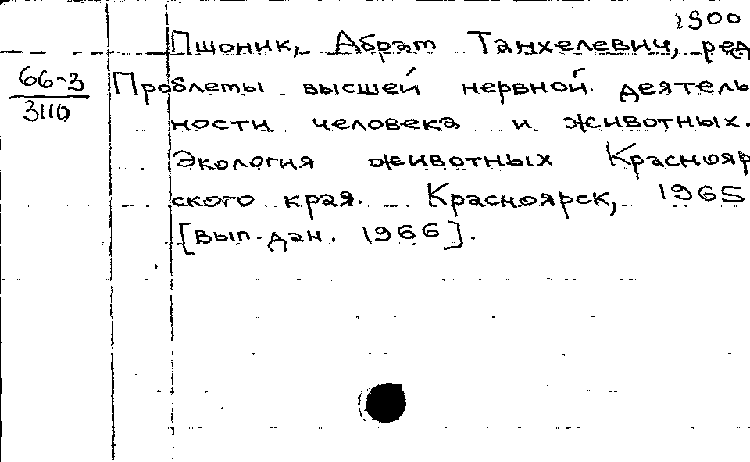 1900
Пшоник, Абрат Танхелевич, ред
66-3
3110
Проблеты высшей нервной деятель
ности человека и животных.
Экология животных Краснояр
ского края. Красноярск, 1965
[вып. дан. 1966].